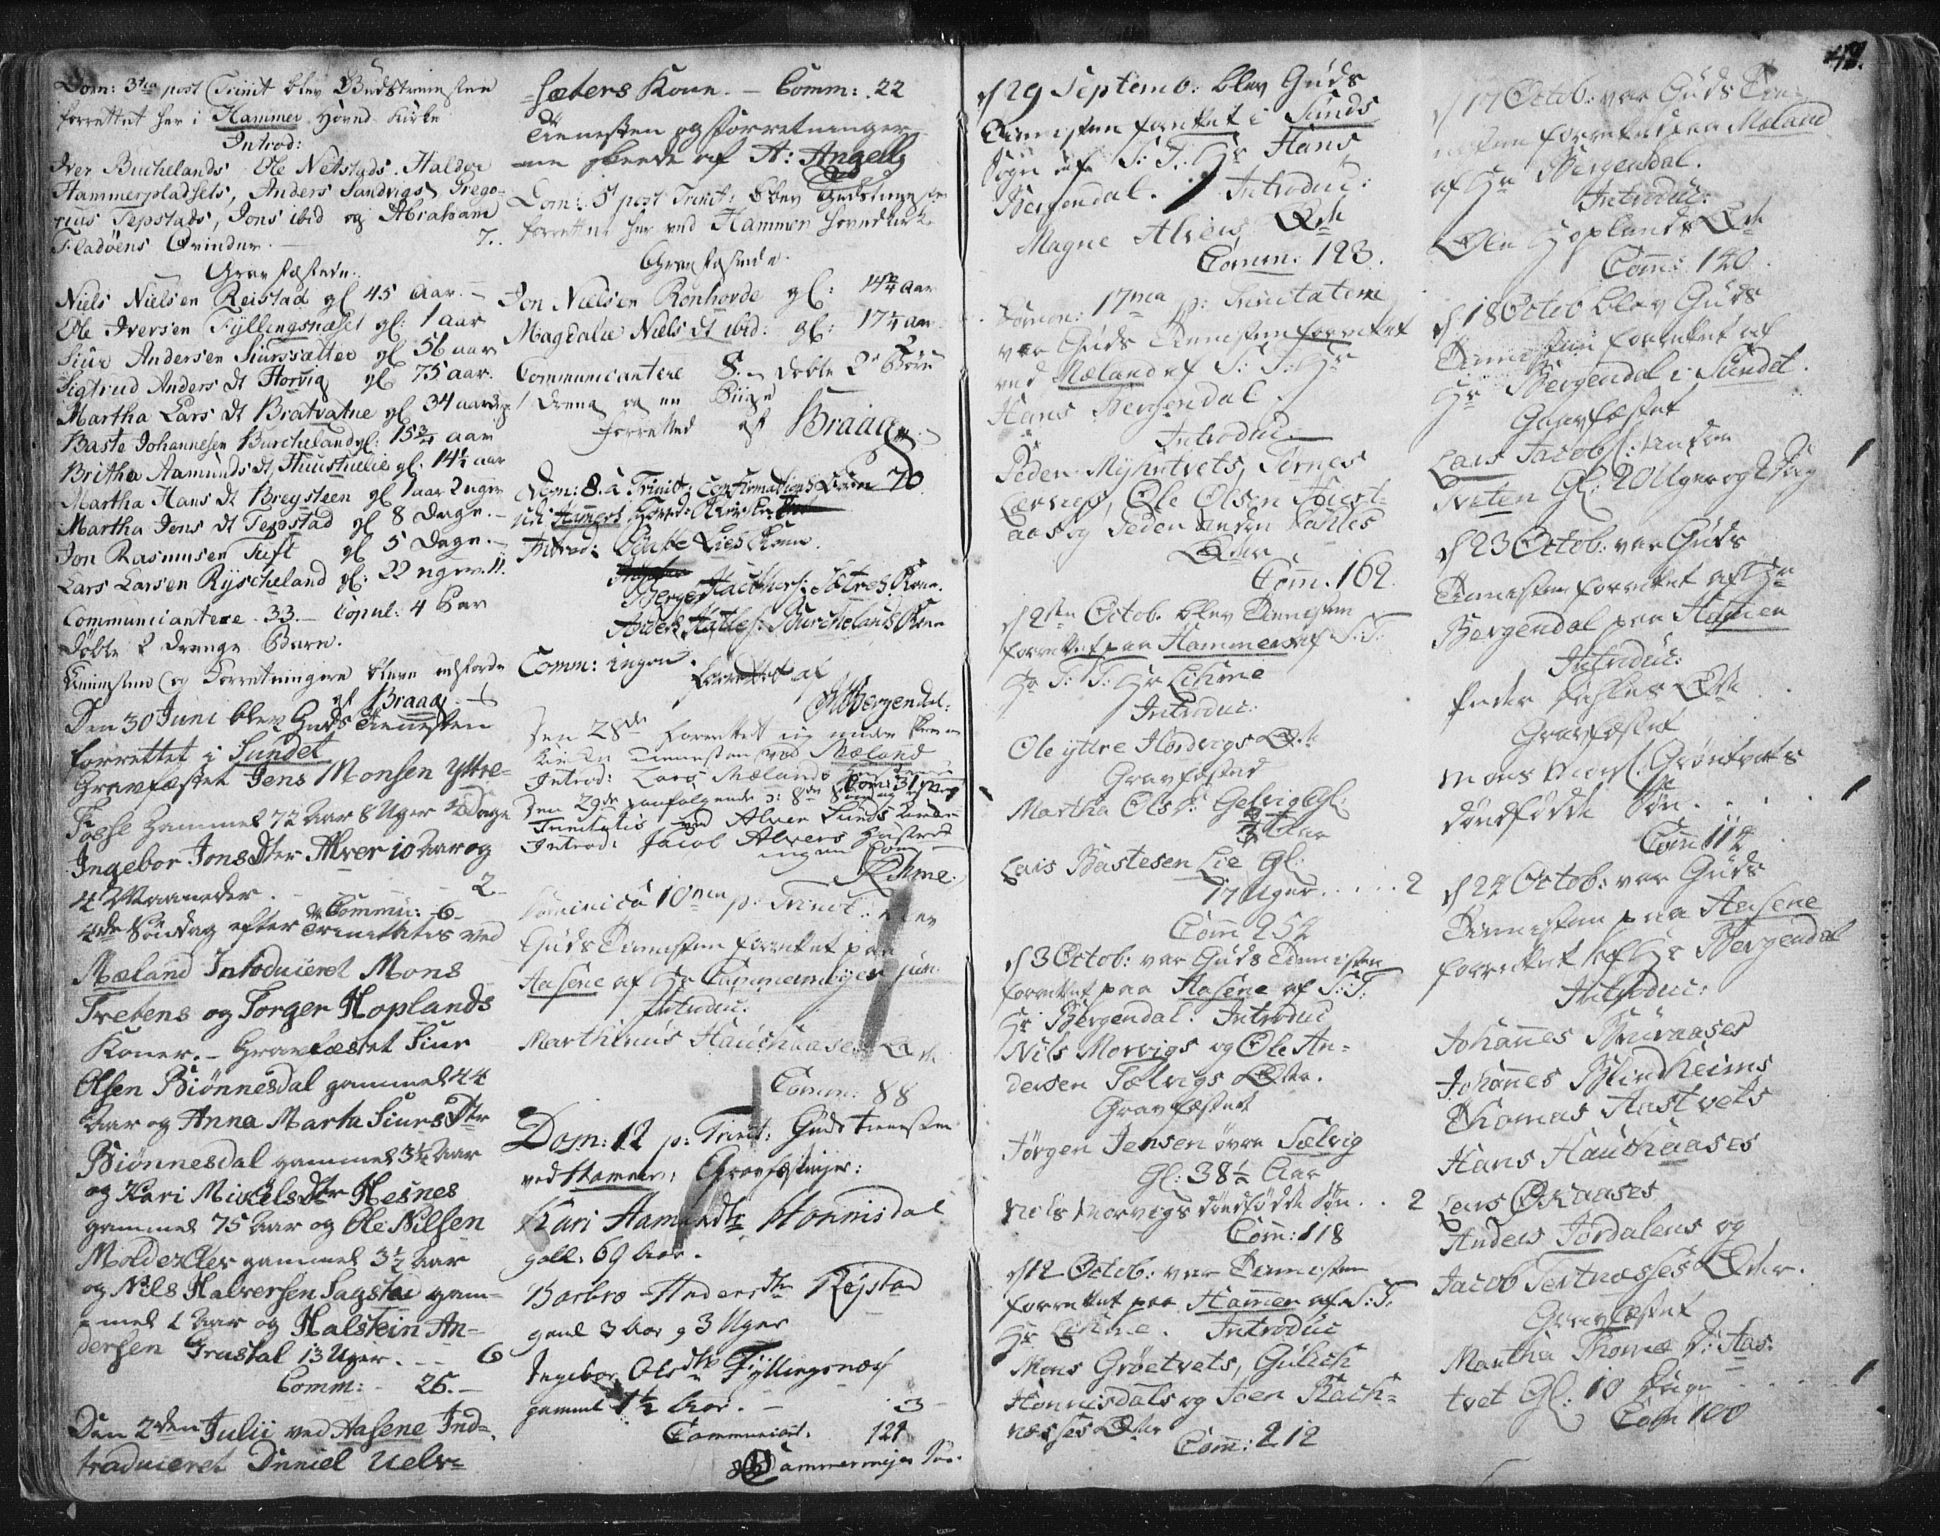 Dom: 3tia post Trinit blev Gudstienesten
forrettet her i Hammer Hoved Kirke
Introd:
Iver Burkelands, Ole Netstads, Haldor
Hammerpladsets, Anders Sandvigs, Grego-
rius Tepstads, Jons ibid og Abraham
Fladøens Qvinder. 7.
Gravfæstede.
Niels Nielsen Reistad gl 45 aar.
Ole Iversen Fyllingsnæset gl: 1 aar
Siur Andersen Siurssætter gl 56 aar
Sigtrud Anders dt Horvig gl 75 aar.
Martha Lars dt Bratvatne gl 34 aar
Baste Johannesen Burchelandgl: 15 3/4 aar
Britha Aamunds dt Huustuelie gl. 14 1/2 aar
Martha Hans dt Breysteen gl 1 aar 2 uger
Martha Jons dt Tepstad gl 8 Dage.
Jon Rasmusen Tuft gl 5 Dage.
Lars Larsen Ryscheland gl: 22 uger. 11.
Communicantere 33. Copul: 4 Par
døbte 2 drenge Barn.
Tienesten og Forretningere bleve
af Braag.
Den 30 Juni blev Guds Tienesten
forrettet i Sundet
Gravfæstet Jens Monsen Yttre-
Fosse Gammel 72 Aar 8 Uger Dage
Ingebor Jons Dtr Alver 10 Aar og
4 Maaneder. 2
Commu: 6
4de Søndag efter Trinitatis ved
Mæland Introduceret Mons
Tvetens og Torger Hoplands
Koner. Gravfæstet Siur
Olsen Biønnesdal gammel 44
Aar og Anna Marta Siurs Dtr
Biønnesdal gammel 3 1/2 Aar
og Kari Mickels Dtr Hesnes
gammel 75 Aar og Ole Nilsen
Molde gammel 3 1/2 Aar
og Nils Halversen Sagstad gam-
mel 1 Aar og Halstein An-
dersen Frustal 13 Uger. 6
Comm: 26.
Den 2den Julii ved Aasene Ind-
traduceret Daniel Uelv-
sæters Kone. Comm: 22
Tienesten og Forretninger
ne skeede af H: Angell
Dom: 5 post Trinit: blev Gudstienesten
forrettet her ved Hammer Hovedkirke
Gravfæstede.
Jon Nielsen Ronhovde gl: 14 aar
Magdalie Niels dt ibid: gl: 17 1/4 aar
Communicantere 8. døbte 2 Børn
1 dreng og en Piige
forretted af Braag
Dom: 8. a Trinit: Confirmations Børn 70
udi Hammers Hoved Kirke
Introd: Baste Lies Kone.
Berge Kone.
Anders Burchelands Kone
Comm: ingen.
forrettet af
Bergendal.
Den 28de forrettet
Tienesten ved Mæland
Introd: Lars Mælands Com: 31
Den 29de paafølgende 8de Søndag
Trinitatis ved Alver Sunds Kirke
Introd: Jacob Alvers Hustroe
ingen Com
Lihme.
Dominica 10ma p: Trinit: blev
Guds Tienesten forrettet paa
Aasene af Hr Cammermeyer jun.
Introduc:
Marthinus Hauchaases Qde
Comm: 88
Dom: 12 p: Trinit: Guds tienesten
ved Hammer, Gravfæstinger:
Kari Hamundtr Honnisdal
gall. 69 Aar.
Barbro Andersdtr Reystad
gaml 3 Aar og 3 Uger
Ingebor Olsdtr Fyllingsnæs
gammel 1 1/2 Aar. 3
Communicant. 121
Cammermeyer Jun.
d 29 Septemb: blev Guds
Tienesten forrettet i Sunds
Sogn af S: T: Hr Hans
Bergendal. Introduc:
Magne Alvers Qde
Comm: 123.
Domin: 17ma p: Trinitatem
var Guds Tienesten forrettet
ved Mæland af S: T: Hr
Hans Bergendal.
Introduc.
Peder Myhrtvets, Tornes
Lervigs, Ole Olsen
aas og Peder
Qder
Com. 162.
d 2den Octob. blev Tienesten
forrettet paa Hammer af S: T:
Hr S: T: Hr Lihme
Introduc:
Ole yttre Hordvigs Qde
Gravfæsted
Martha Ols d: Gelvig Gl:
Aar
Lars Bastesen Lie Gl:
17 Uger . . . . . 2
Com 254
d 3 Octob: var Guds Tienesten
forrettet paa Aasene af S: T:
Hr Bergendal: Introduc
Nils Morvigs og Ole An-
dersen Tælvigs Qder.
Gravfæstet
Jørgen Jensen øvre Sælvig
Gl: 38 1/2 Aar
Niels Morvigs dødfødde Søn. . 2
Com: 118
d 12 Octob: var Tienesten
forrettet paa Hammer af S: T:
Hr Lihme. Introduc
Mons Grøetvets, Gulich
Honnisdals og Joen
næsses Qder
Com: 212
42.
d 17 Octob: var Guds Tie-
nesten forrettet paa Mæland
af Hr Bergendal.
Introduc:
Ole Hoplands Qde
Com: 140.
d 18 Octob blev Guds
Tienesten forrettet af
Hr Bergendal i Sundet.
Gravfæstet
Lars Jacobs:
Tveten Gl: 20 Uger og 2 Dag
d 23 Octob: var Guds
Tienesten forrettet af Hr
Bergendal paa Hamer
Introduc:
Peder Qde
Gravfæstet
Mons Grøntvets
dødfødde Søn.
Com 114
d 24 Octob: var Guds
Tienesten paa Aasene
forrettet af Hr Bergendal
Introduc:
Johannes
Johannes Blindheims
Thomas Aastvets
Hans Hauchaases
Lars Øchaases
Anders Jordalens og
Jacob Tertnæsses Qder.
Gravfæstet
Martha Thomæ D: Aas-
tvet Gl: 10 Dage
Com 100